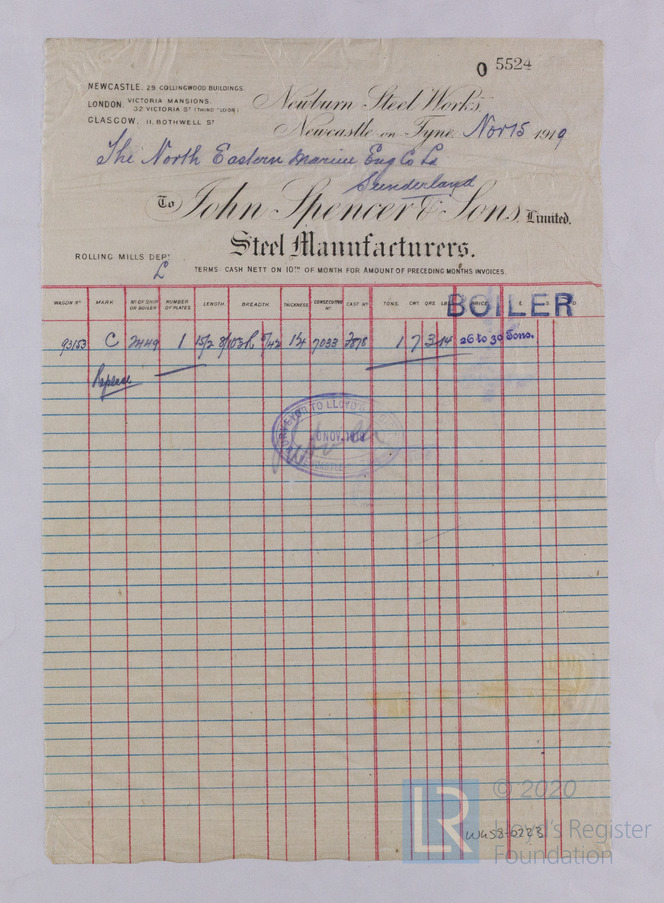 O 5524
NEWCASTLE, 29 COLLINGWOOD BUILDINGS.
LONDON, VICTORIA MANSIONS,
32 VICTORIA ST (THIRD FLOOR)
GLASGOW, 11, BOTHWELL ST
Newburn Steel Works,
Newcastle-on-Tyne, Nov 15 1919
The North Eastern Marine Eng Co Ld
Sunderland
To John Spencer & Sons, Limited,
Steel Manufacturers.
ROLLING MILLS DEPT
L
TERMS: CASH NETT ON 10TH OF MONTH FOR AMOUNT OF PRECEDING MONTHS INVOICES.
WAGON No MARK No OF SHIP OR BOILER NUMBER OF PLATES LENGTH. BREADTH. THICKNESS CONSECUTIVE No CAST No TONS. CWT. QRS. LBS. PRICE. £ S. D
BOILER
93153 C 2449 1 1 7 3 14 26 to 30 Tons.
Replace
SURVEYOR TO LLOYD'S
NOV. 1919
© 2020
LR Lloyd's Register
Foundation